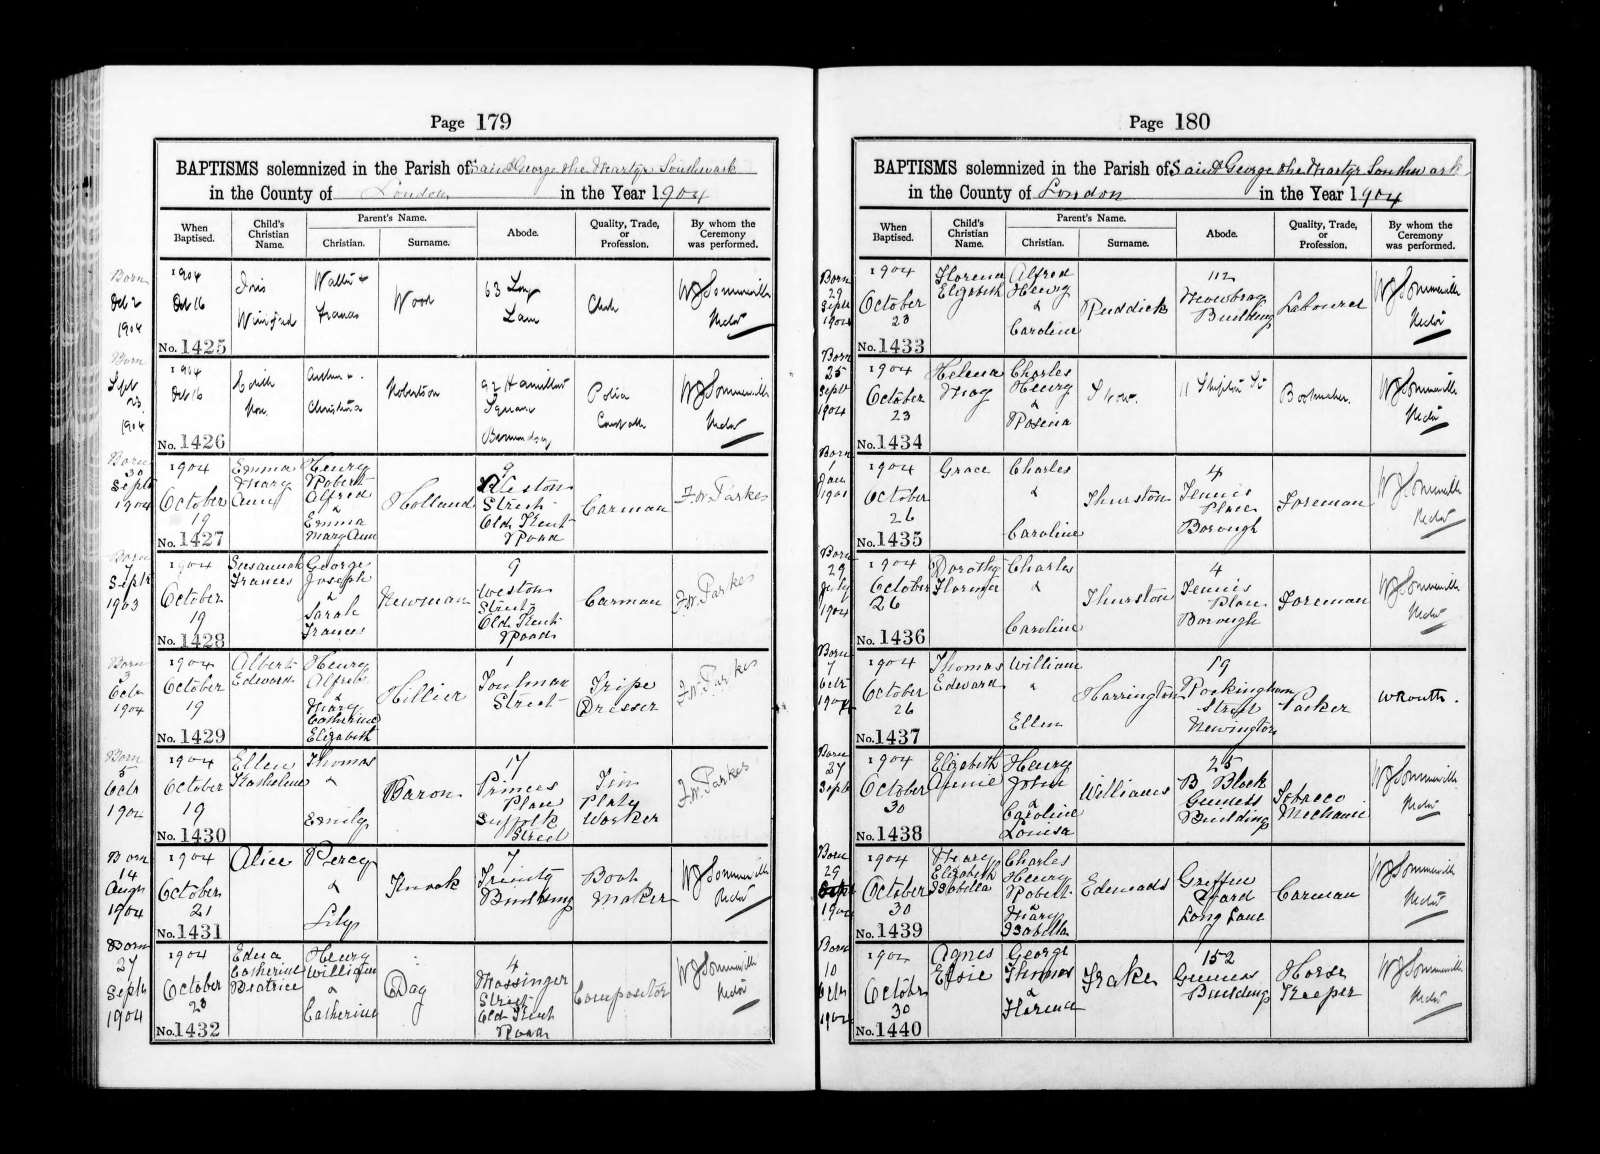 Page 179
BAPTISMS solemnized in the Parish of Saint George the Martyr Southwark
in the County of London in the Year 1904
When Baptised.
Child's Christian Name.
Parent's Name.
Christian.
Surname.
Abode.
Quality, Trade, or Profession.
By whom the Ceremony was performed.
Born Oct 2 1904
1904 Oct 16
No. 1425
Iris Winifred
Walter & Frances
Wood
63 Long Lane
Clerk
Rector
Born Sept 23 1904
1904 Oct 16
No. 1426
Edith
Arthur & Christina
Robertson
92 Hamilton Square Bermondsey
Police Constable
Rector
Born 30 Septr 1904
1904 October 19
No. 1427
Emma Mary Ann
Henry Robert Alfred & Emma Mary Ann
Holland
9 Weston Street Old Kent Road
Carman
F.W. Parkes
Born 7 Septr 1903
1904 October 19
No. 1428
Susannah Frances
George Joseph & Sarah Frances
Newman
9 Weston Street Old Kent Road
Carman
F.W. Parkes
Born 3 Octr 1904
1904 October 19
No. 1429
Albert Edward
Henry Alfred & Mary Catherine Elizabeth
Hillier
1 Toulman Street
Tripe Dresser
F.W. Parkes
Born 5 Octr 1904
1904 October 19
No. 1430
Ellen Kathleen
Thomas & Emily
Baron
17 Princes Place Suffolk Street
Tin Plate Worker
F.W. Parkes
Born 14 Augt 1904
1904 October 21
No. 1431
Alice
Percy & Lily
Knook
7 Trinity Buildings
Boot Maker
Rector
Born 27 Septr 1904
1904 October 23
No. 1432
Edna Catherine Beatrice
Henry William & Catherine
Day
4 Massinger Street Old Kent Road
Compositor
Rector
Page 180
BAPTISMS solemnized in the Parish of Saint George the Martyr Southwark
in the County of London in the Year 1904
When Baptised.
Child's Christian Name.
Parent's Name.
Christian.
Surname.
Abode.
Quality, Trade, or Profession.
By whom the Ceremony was performed.
Born 29 Septr 1904
1904 October 23
No. 1433
Florence Elizabeth
Alfred Henry & Caroline
Puddick
112 Building
Labourer
Rector
Born 25 Septr 1904
1904 October 23
No. 1434
Helena May
Charles Henry & Rosina
Snow.
11 Shipton St
Bookmaker.
Rector
Born 1 Jan 1901
1904 October 26
No. 1435
Grace
Charles & Caroline
Thurston
4 Tennis Place Borough
Foreman
Rector
Born 29 July 1904
1904 October 26
No. 1436
Dorothy Florence
Charles & Caroline
Thurston
4 Tennis Place Borough
Foreman
Rector
Born 7 Octr 1904
1904 October 26
No. 1437
Thomas Edward
William & Ellen
Harrington
19 Rockingham Street Newington
Packer
W Routh.
Born 27 Septr
1904 October 30
No. 1438
Elizabeth Annie
Henry John & Caroline Louisa
Williams
25 B Block Guiness Building
Tobacco Mechanic
Rector
Born 29 Sept 1904
1904 October 30
No. 1439
Mary Elizabeth Isabella
Charles Henry Robert & Mary Isabella
Edmeads
Griffin Yard Long Lane
Carman
Rector
Born 10 Octr 1904
1904 October 30
No. 1440
Agnes Elsie
George Thomas & Florence
Frake
152 Guiness Building
Horse Keeper
Rector